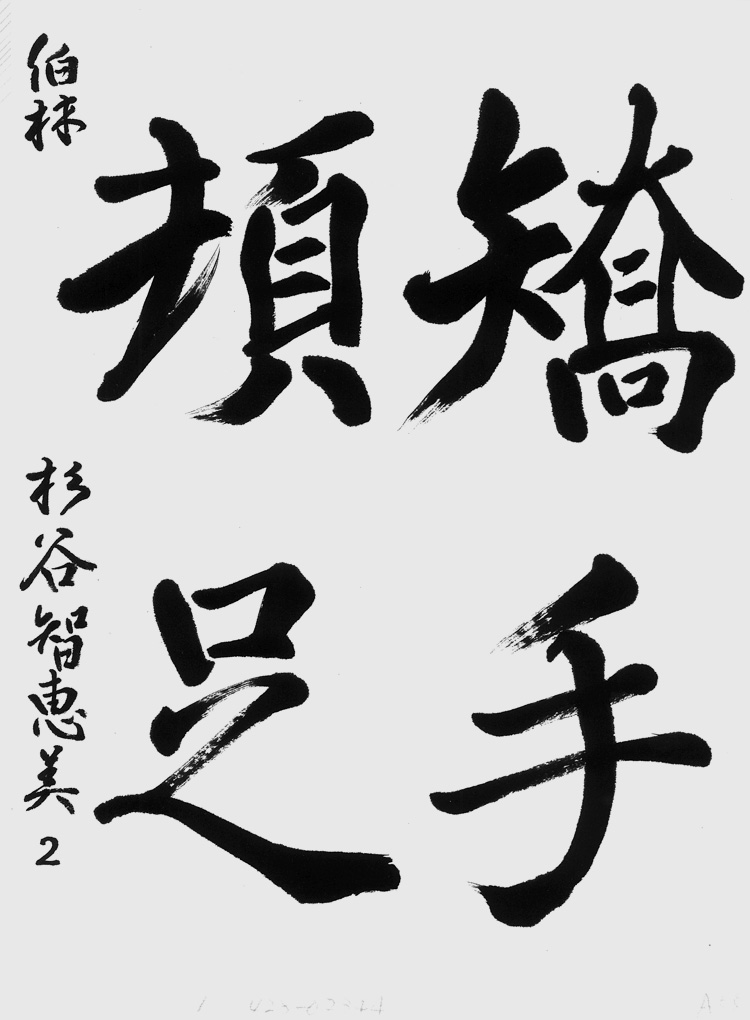 矯手
頓足
伯林
杉谷智恵美 2